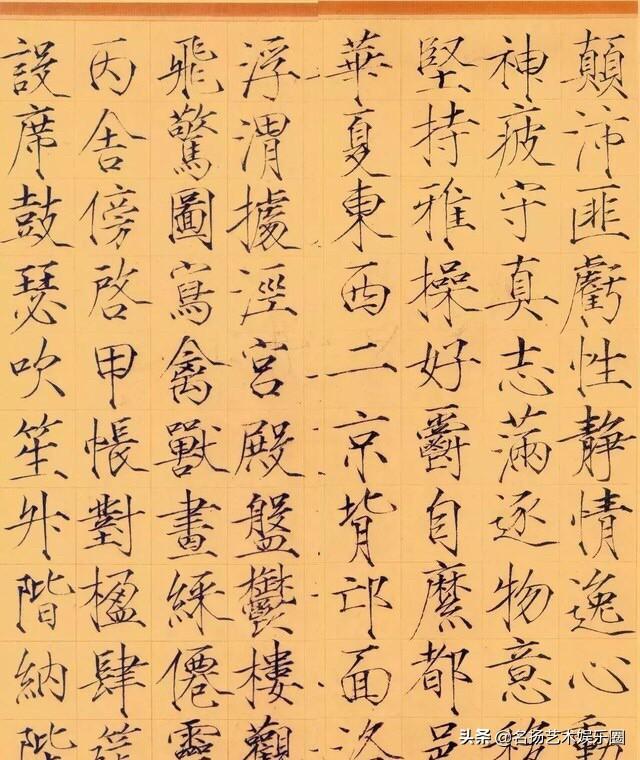 顛沛匪虧性靜情逸心動
神疲守真志滿逐物意移
堅持雅操好爵自縻都邑
華夏東西二京背邙面洛
浮渭據涇宮殿盤鬱樓觀
飛驚圖寫禽獸畫綵僊靈
丙舍傍啓甲帳對楹肆筵
設席鼓瑟吹笙升階納陛
头条 @名扬艺术娱乐圈